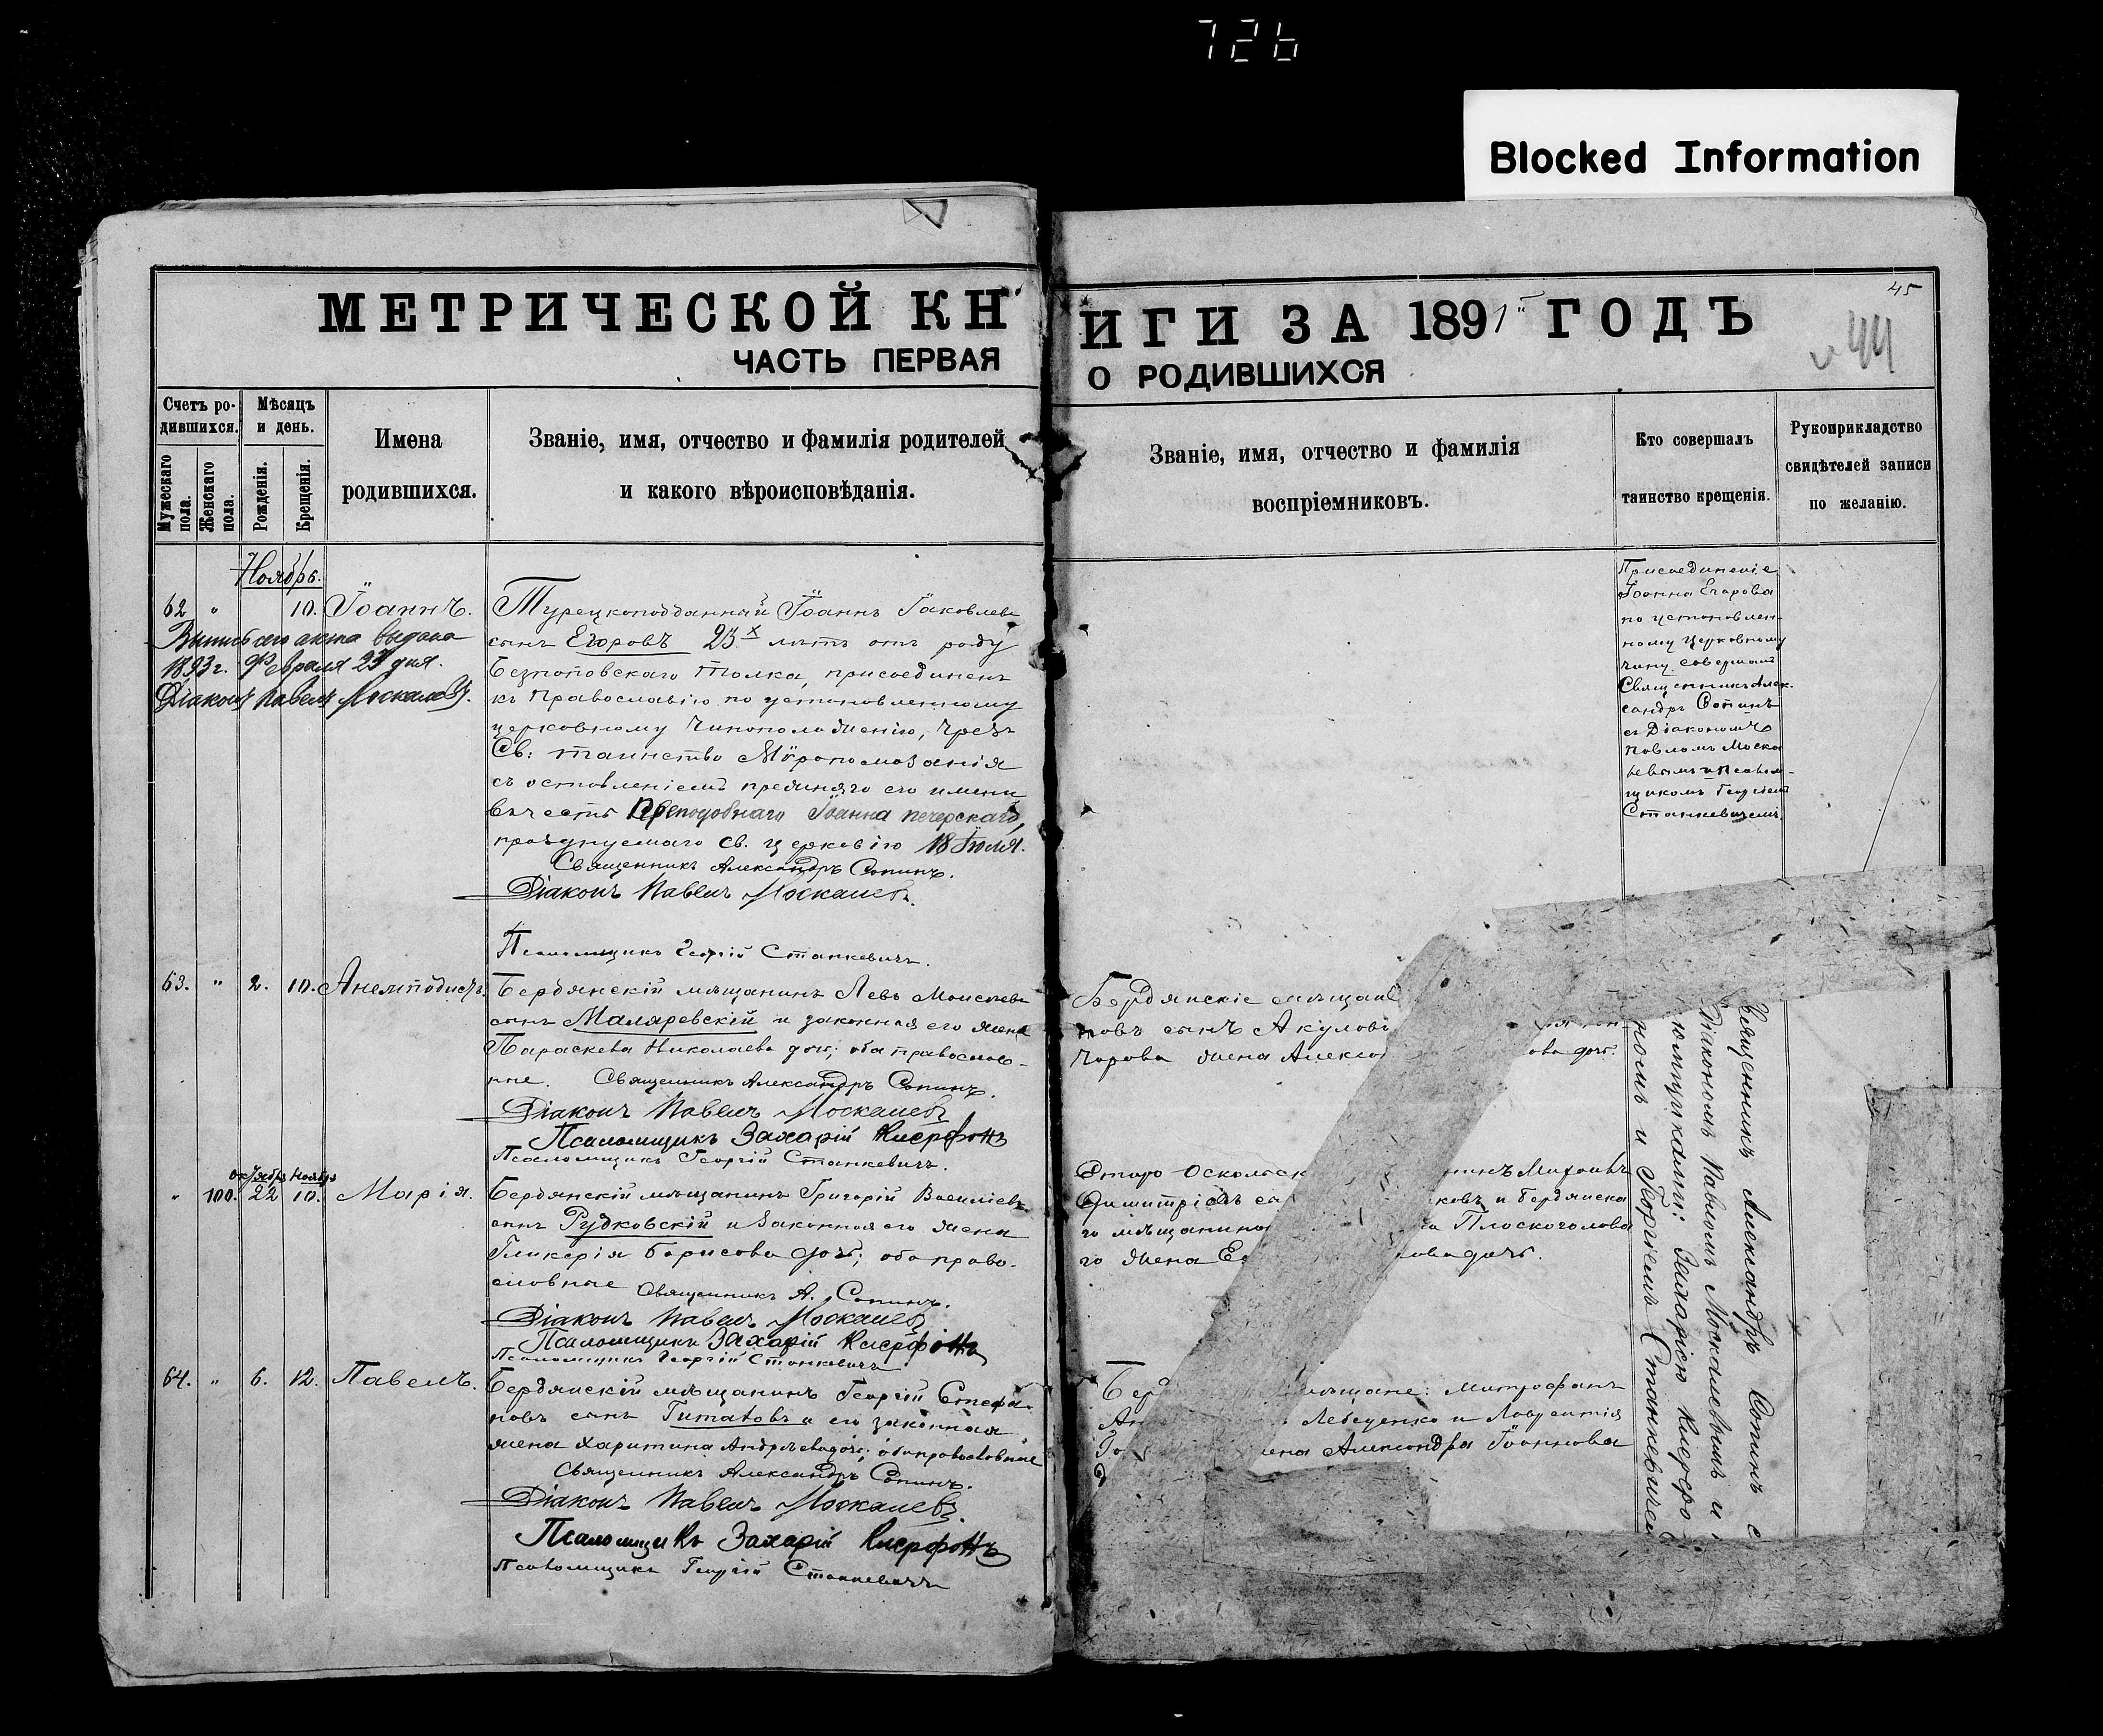 726
Blocked Information
МЕТРИЧЕСКОЙ КН
ЧАСТЬ ПЕРВАЯ
ИГИ ЗА 1891 ГОДЪ
О РОДИВШИХСЯ
45
44
Счетъ ро-
дившихся.
Мужескаго
пола.
Женскаго
пола.
Мѣсяцъ
и день.
Рожденія.
Крещенія.
Имена
родившихся.
Званіе, имя, отчество и фамилія родителей
и какого вѣроисповѣданія.
Званіе, имя, отчество и фамилія
воспріемниковъ.
Кто совершалъ
таинство крещенія.
Рукоприкладство
свидѣтелей записи
по желанію.
Ноябрь.
62 " 10. Іоаннъ.
Выпись сего акта выдана
1893 г. Февраля 23 дня.
Діаконъ Павелъ Москалевъ.
Турецкоподданный Іоаннъ Іаковлевъ
сынъ Егоровъ 23х лѣтъ отъ роду
безпоповскаго толка, присоединенъ
къ Православію по установленному
церковному чиноположенію, чрезъ
Св: таинство Мѵропомазанія
съ оставленіемъ прежняго его имени
въ честь Преподобнаго Іоанна печерскаго,
празднуемаго св. церковію 18 Іюля.
Священникъ Александръ Сопинъ.
Діаконъ Павелъ Москалевъ.
Псаломщикъ Георгій Станкевичъ.
Присоединеніе
Іоанна Егорова
по установлен-
ному церковному
чину совершалъ
Священникъ Алек-
сандръ Сопинъ
съ Діакономъ
Павломъ Моска
левымъ и Псалом-
щикомъ Георгіемъ
Станкевичемъ.
63. " 2. 10. Анемподистъ.
Бердянскій мѣщанинъ Левъ Моисѣевъ
сынъ Маляревскій и законная его жена
Параскева Николаева дочь; оба православ-
ные. Священникъ Александръ Сопинъ.
Діаконъ Павелъ Москалевъ
Псаломщикъ Захарій
Псаломщикъ Георгій Станкевичъ.
Бердянскіе мѣщан
новъ сынъ Акулов
чарова жена Алекса
ова дочь.
Октябрь Ноябрь
" 100. 22 10. Марія.
Бердянскій мѣщанинъ Григорій Василіевъ
сынъ Рудковскій и законная его жена
Гликерія Борисова дочь; оба право-
славные Священникъ А. Сопинъ.
Діаконъ Павелъ Москалевъ
Псаломщикъ Захарій
Псаломщикъ Георгій Станкевичъ
Старо Оскольск нинъ Михаилъ
Димитріевъ с ковъ и Бердянска
го мѣщанина на Плоскоголова
го жена Е ова дочь.
64. " 6. 12. Павелъ.
Бердянскій мѣщанинъ Георгій Стефа-
новъ сынъ и его законная
жена Харитина Андрѣева дочь; оба православные
Священникъ Александръ Сопинъ.
Діаконъ Павелъ Москалевъ.
Псаломщикъ Захарій
Псаломщикъ Георгій Станкевичъ
Бер мѣщане: Митрофанъ
Ан Лебеденко и Лаврентія
Го жена Александра Іоаннова
Священникъ Александръ Сопинъ с
Діакономъ Павломъ Москалевымъ и
ломщиками: Захаріею
номъ и Георгіемъ Станкевичем